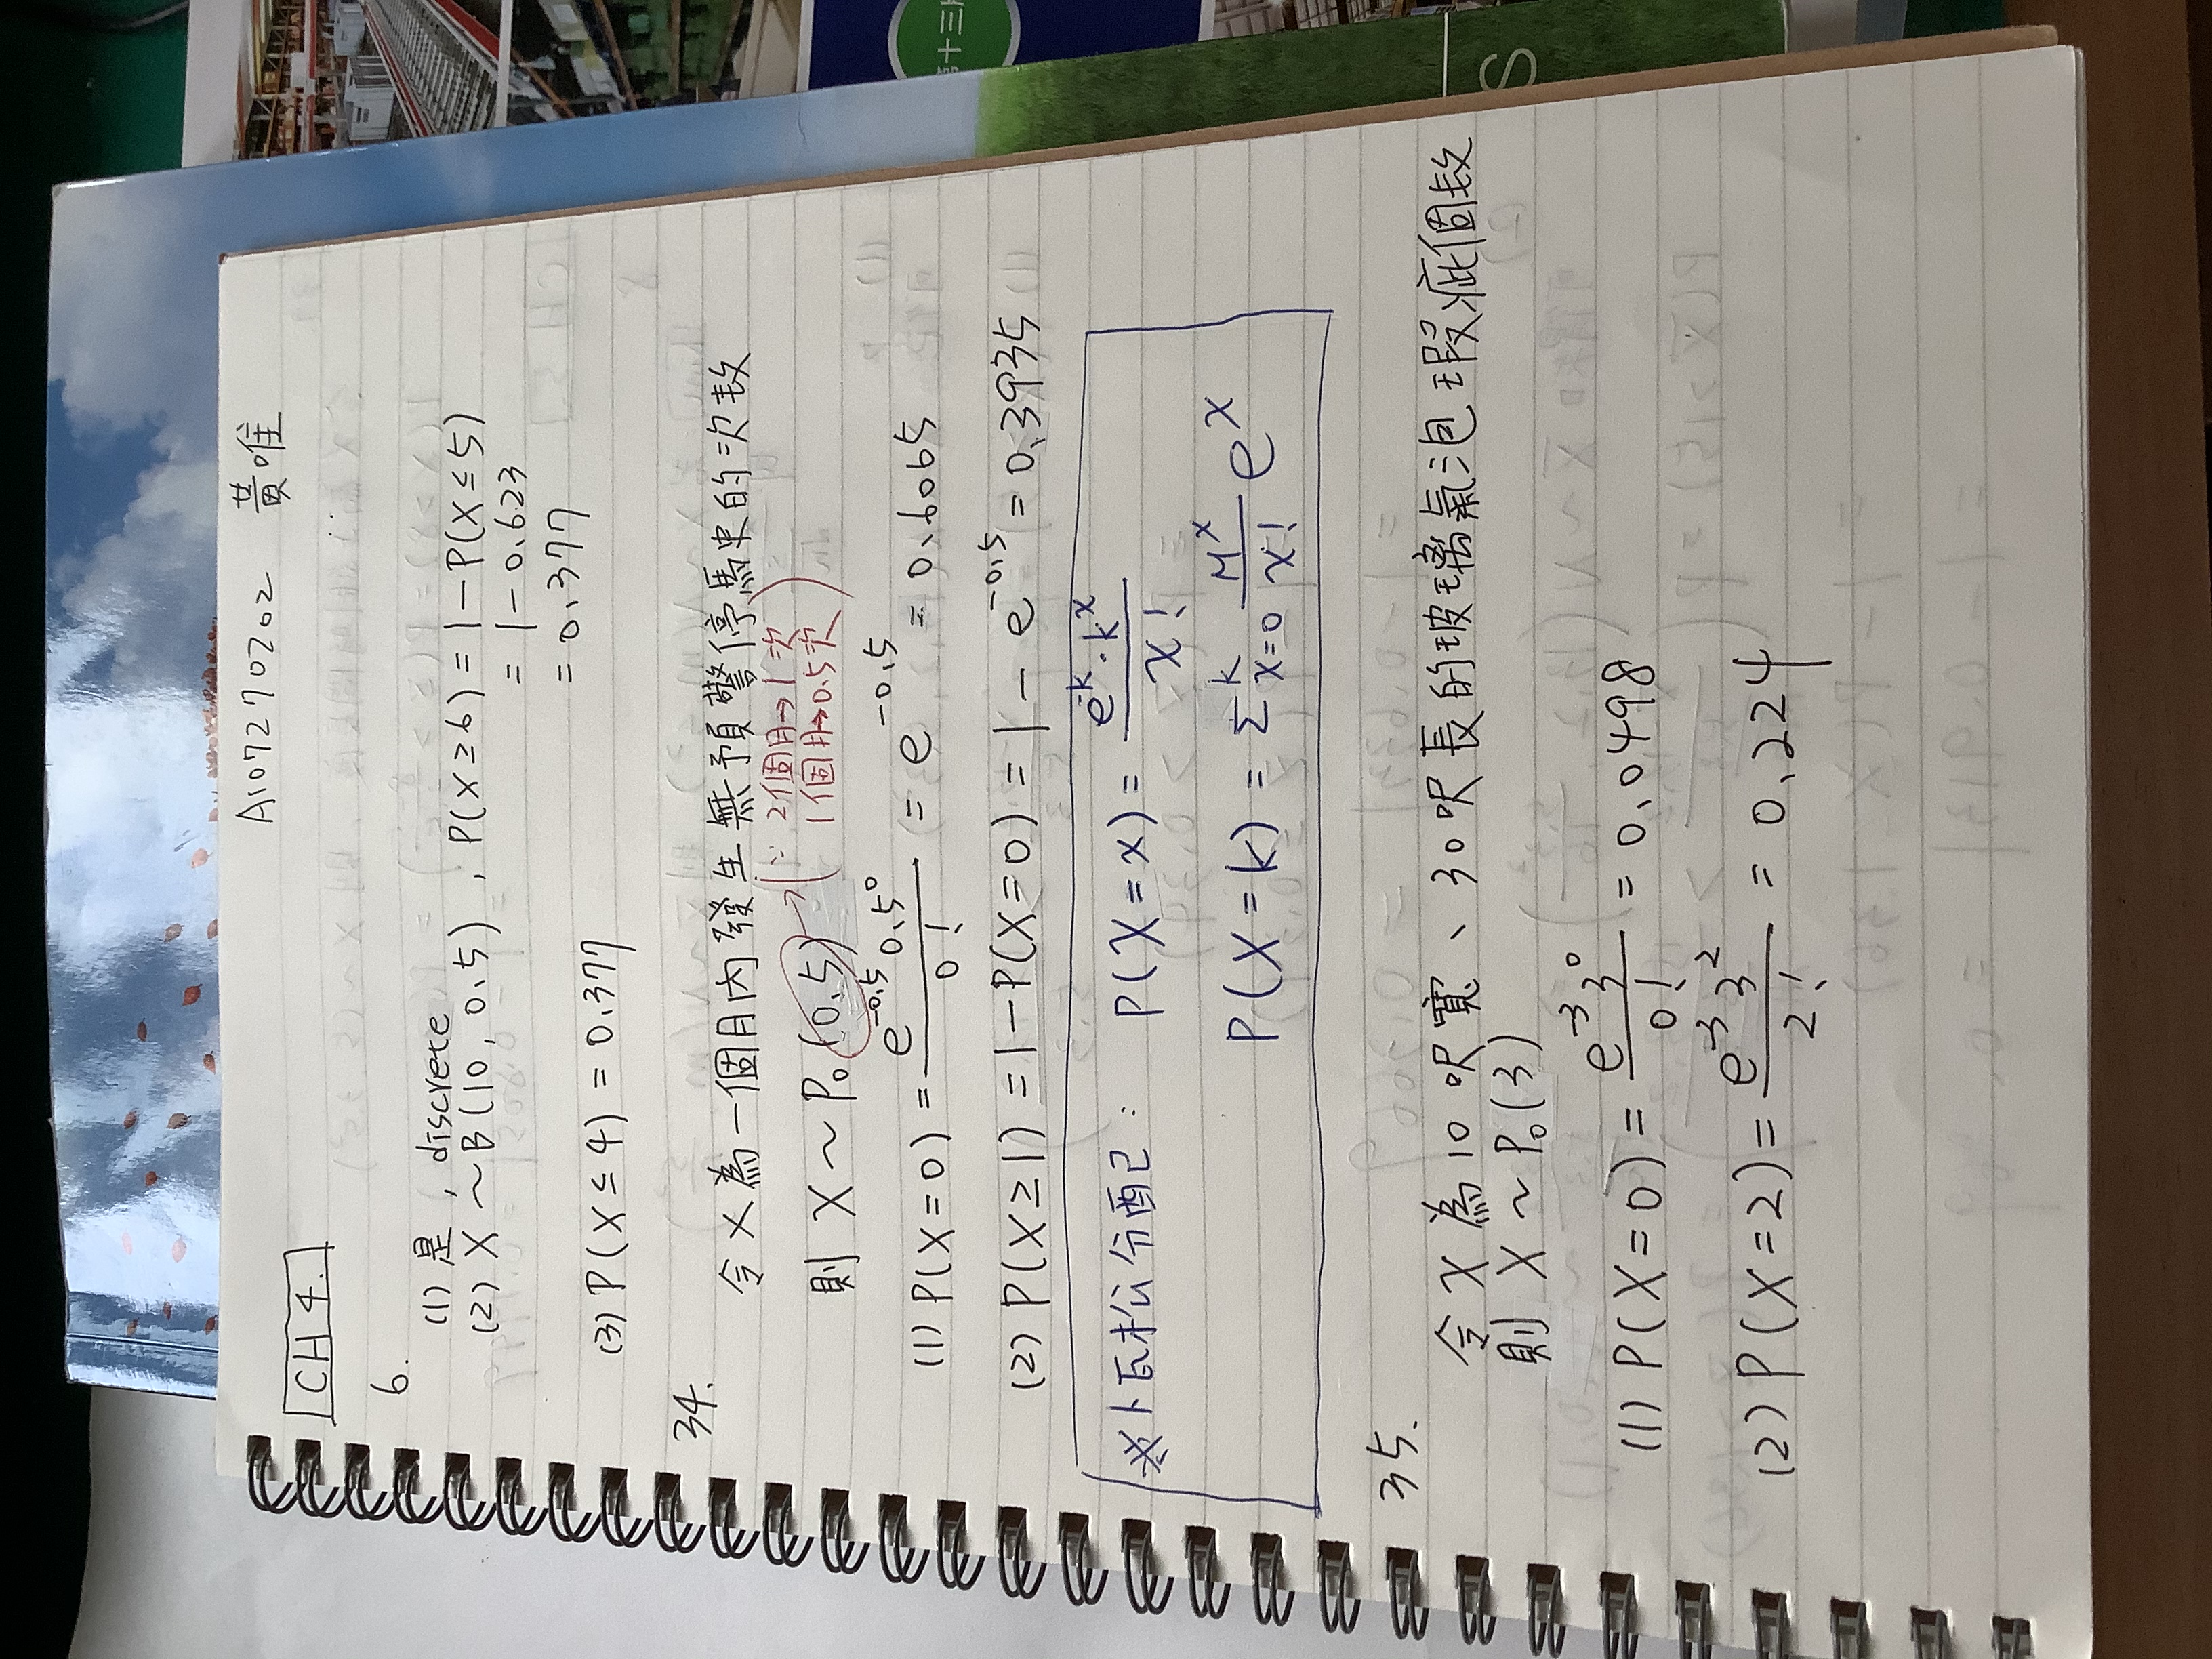 A107270202 黃唯
CH 4.
6.
(1) 是, discrete
(2) X ~ B(10, 0.5), P(X ≥ 6) = 1 - P(X ≤ 5)
= 1 - 0.623
= 0.377
(3) P(X ≤ 4) = 0.377
34.
令X為一個月內發生無預警停駛的次數
(∵ 2個月→1次
1個月→0.5次)
則 X ~ Po(0.5)
(1) P(X = 0) = e^-0.5 0.5^0 / 0! = e^-0.5 = 0.6065
(2) P(X ≥ 1) = 1 - P(X = 0) = 1 - e^-0.5 = 0.3935
※卜瓦松分配: P(X = x) = e^-k · k^x / x!
P(X = k) = Σ^k_x=0 M^x / x! e^x
35.
令X為10呎寬、30呎長的玻璃氣泡瑕疵個數
則 X ~ Po(3)
(1) P(X = 0) = e^-3 3^0 / 0! = 0.0498
(2) P(X = 2) = e^-3 3^2 / 2! = 0.224
第十三版
S